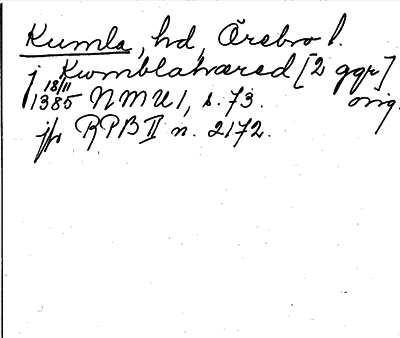 Kumla, hd, Örebro l.
j Kwmblahæred [2 ggr]
18/11 1385 NMU 1, s. 73. orig.
jfr RPB II n. 2172.